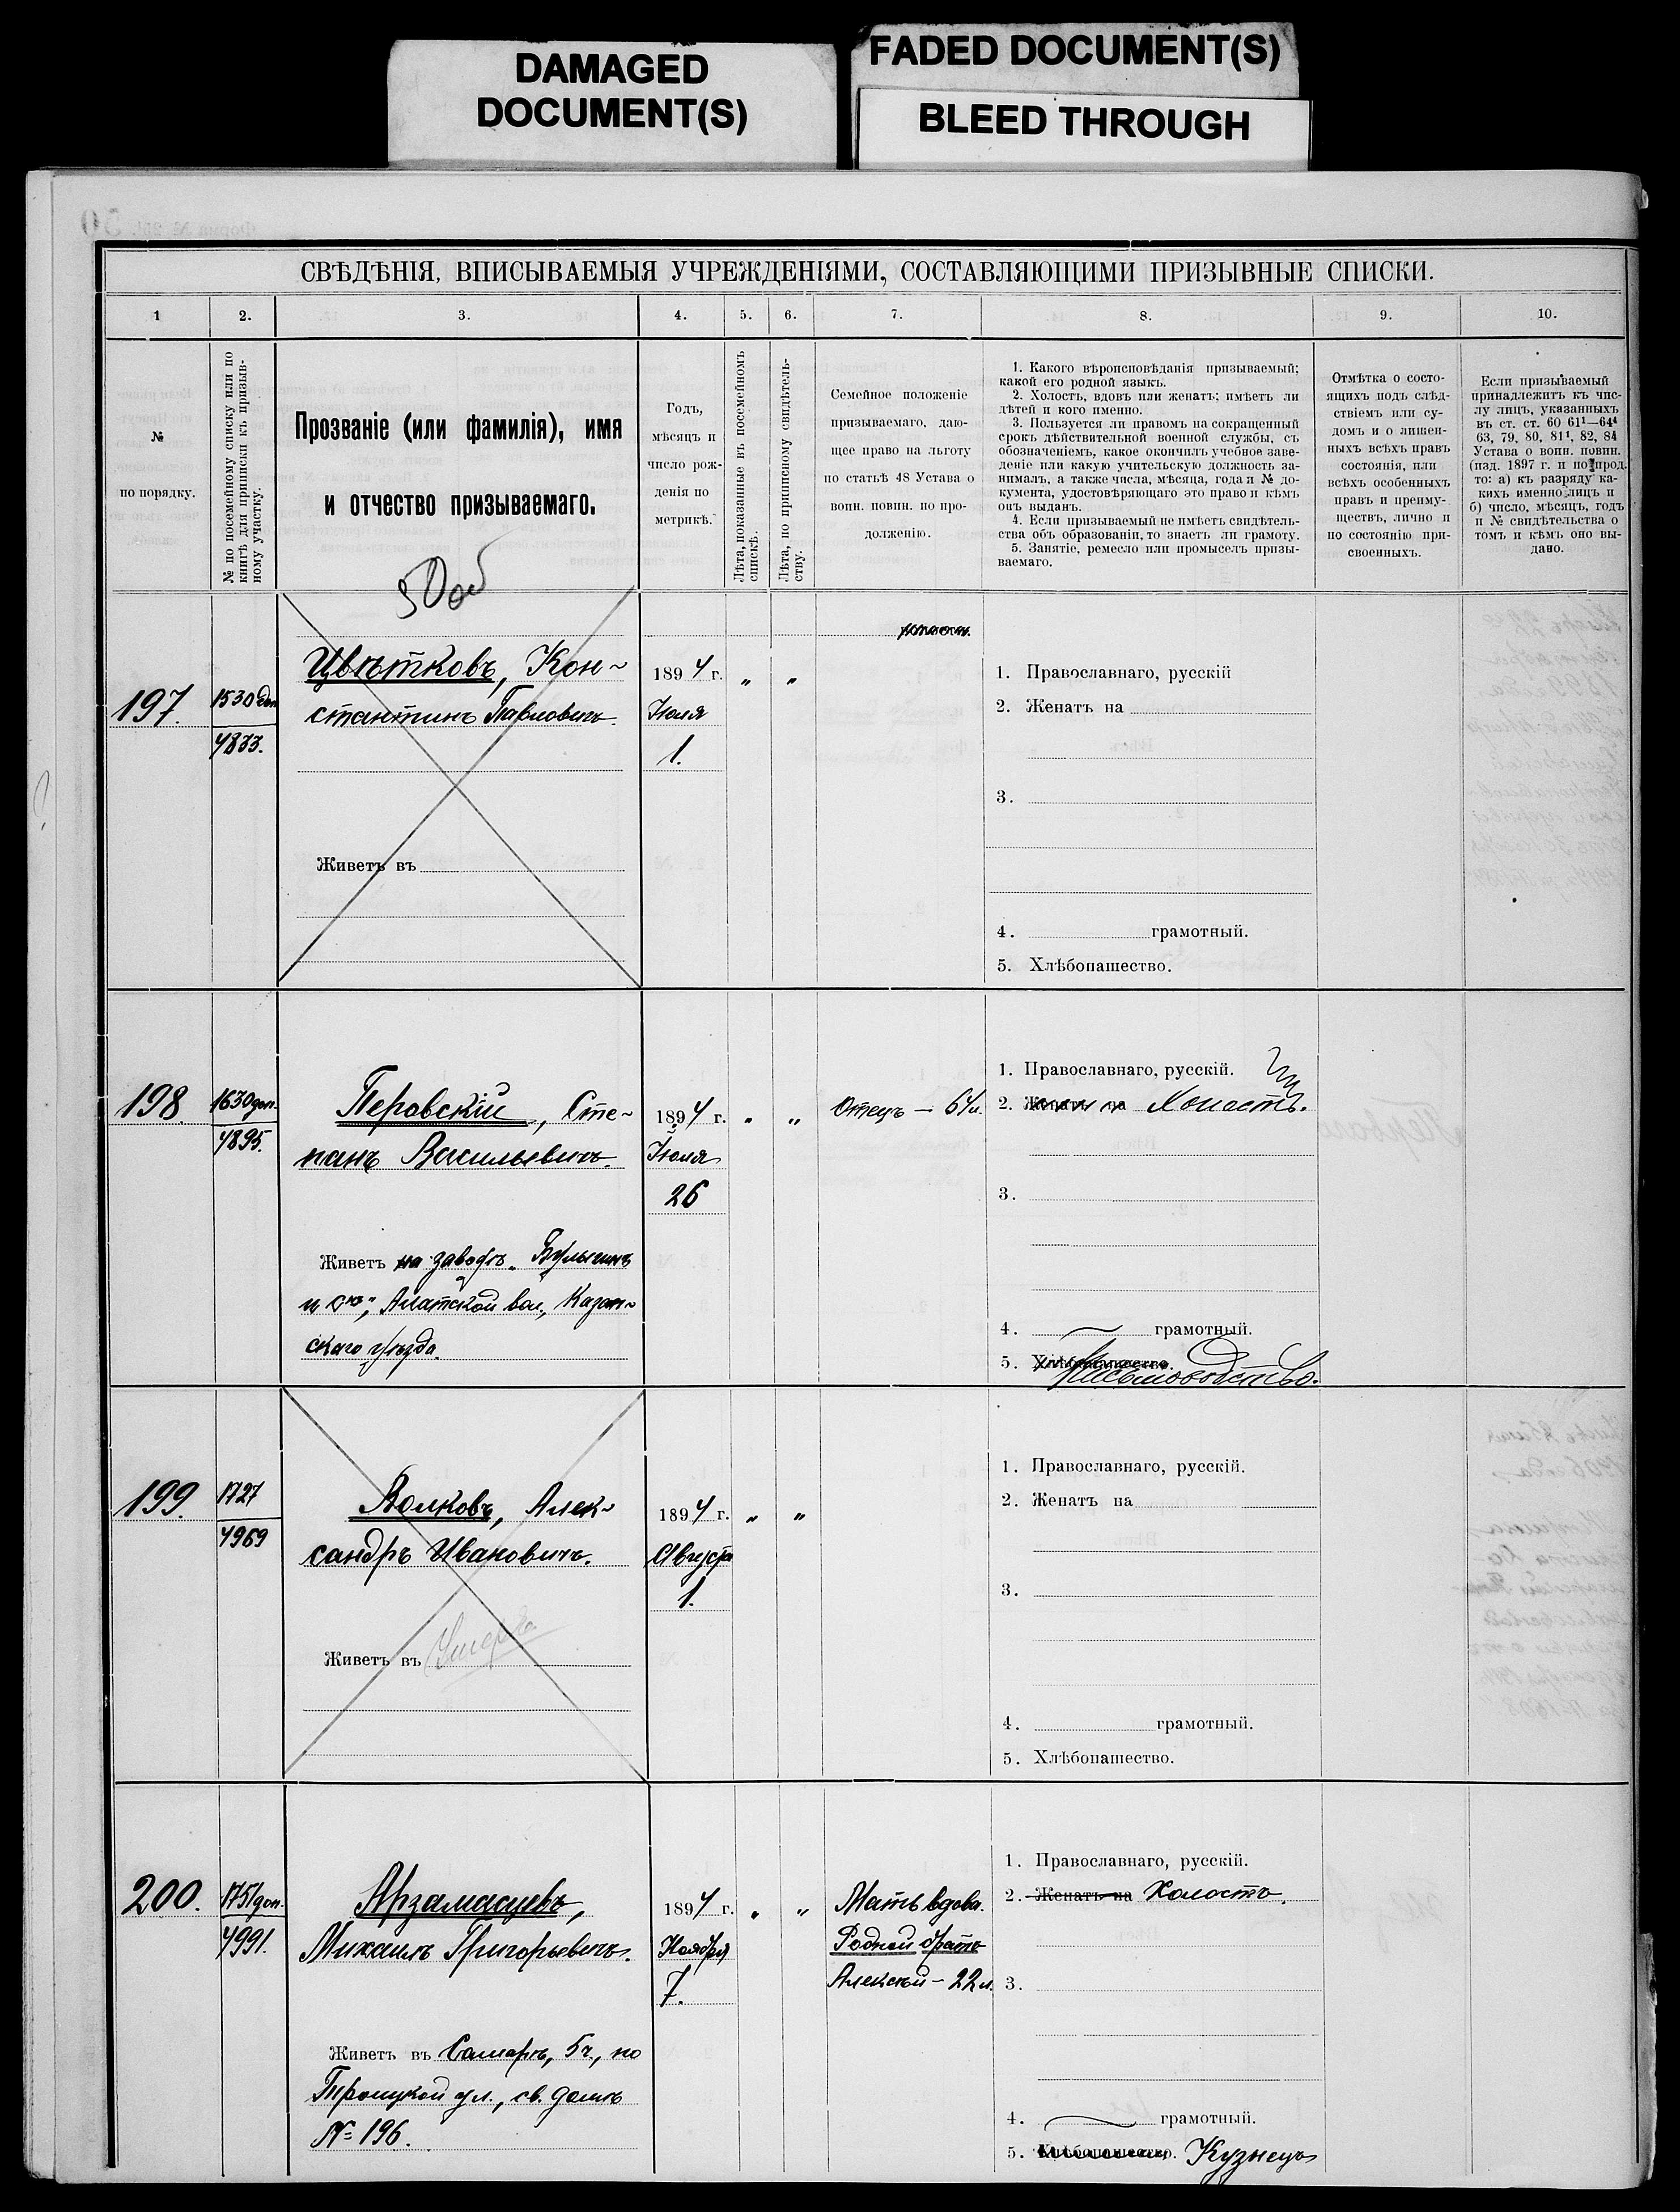 DAMAGED
DOCUMENT(S)
FADED DOCUMENT(S)
BLEED THROUGH
СВѢДѢНІЯ, ВПИСЫВАЕМЫЯ УЧРЕЖДЕНІЯМИ, СОСТАВЛЯЮЩИМИ ПРИЗЫВНЫЕ СПИСКИ.
1 2. 3. 4. 5. 6. 7. 8. 9. 10.
№
по порядку.
№ по посемейному списку или по
книгѣ для приписки къ призыв-
ному участку.
Прозваніе (или фамилія), имя
и отчество призываемаго.
Годъ,
мѣсяцъ и
число рож-
денія по
метрикѣ.
Лѣта, показанные въ посемейномъ
спискѣ.
Лѣта, по приписному свидѣтель-
ству.
Семейное положеніе
призываемаго, даю-
щее право на льготу
по статьѣ 48 Устава о
воин. повин. по про-
долженію.
1. Какого вѣроисповѣданія призываемый;
какой его родной языкъ.
2. Холостъ, вдовъ или женатъ; имѣетъ ли
дѣтей и кого именно.
3. Пользуется ли правомъ на сокращенный
срокъ дѣйствительной военной службы, съ
обозначеніемъ, какое окончилъ учебное заве-
деніе или какую учительскую должность за-
нималъ, а также числа, мѣсяца, года и № до-
кумента, удостовѣряющаго это право и кѣмъ
онъ выданъ.
4. Если призываемый не имѣетъ свидѣтель-
ства объ образованіи, то знаетъ ли грамоту.
5. Занятіе, ремесло или промыселъ призы-
ваемаго.
Отмѣтка о состо-
ящихъ подъ слѣд-
ствіемъ или су-
домъ и о лишен-
ныхъ всѣхъ правъ
состоянія, или
всѣхъ особенныхъ
правъ и преиму-
ществъ, лично и
по состоянію при-
своенныхъ.
Если призываемый
принадлежитъ къ чис-
лу лицъ, указанныхъ
въ ст. ст. 60 61¹—64⁴
63, 79, 80, 81¹, 82, 84
Устава о воин. повин.
(изд. 1897 г. и по прод.
то: а) къ разряду ка-
кихъ именно лицъ и
б) число, мѣсяцъ, годъ
и № свидѣтельства о
томъ и кѣмъ оно вы-
дано.
197.
1530 доп
4833.
Цвѣтковъ, Кон-
стантинъ Павловичъ.
Живетъ въ
1894 г.
Іюля
1.
" "
1. Православнаго, русскій
2. Женатъ на
3.
4. грамотный.
5. Хлѣбопашество.
198.
1630 доп.
4895.
Перовскій, Сте-
панъ Васильевичъ.
Живетъ на заводѣ „Булыгинъ
и Ко", Алатской вол., Казан-
скаго уѣзда.
1894 г.
Іюля
26
" "
Отецъ – 64 л.
1. Православнаго, русскій.
2. Женатъ на Холостъ.
3.
4. грамотный.
5. Хлѣбопашество.
Письмоводство.
199.
1727
4969
Волковъ, Алек-
сандръ Ивановичъ.
Живетъ въ
1894 г.
Августа
1.
" "
1. Православнаго, русскій.
2. Женатъ на
3.
4. грамотный.
5. Хлѣбопашество.
200.
1751 доп.
4991.
Арзамасцевъ,
Михаилъ Григорьевичъ.
Живетъ въ Самарѣ, 5 ч., по
Троицкой ул., св. домъ
№ 196.
1894 г.
Ноября
7.
" "
Мать вдова.
Родной братъ
Алексѣй – 22 л.
1. Православнаго, русскій.
2. Женатъ на Холостъ.
3.
4. грамотный.
5. Хлѣбопашество. Кузнецъ